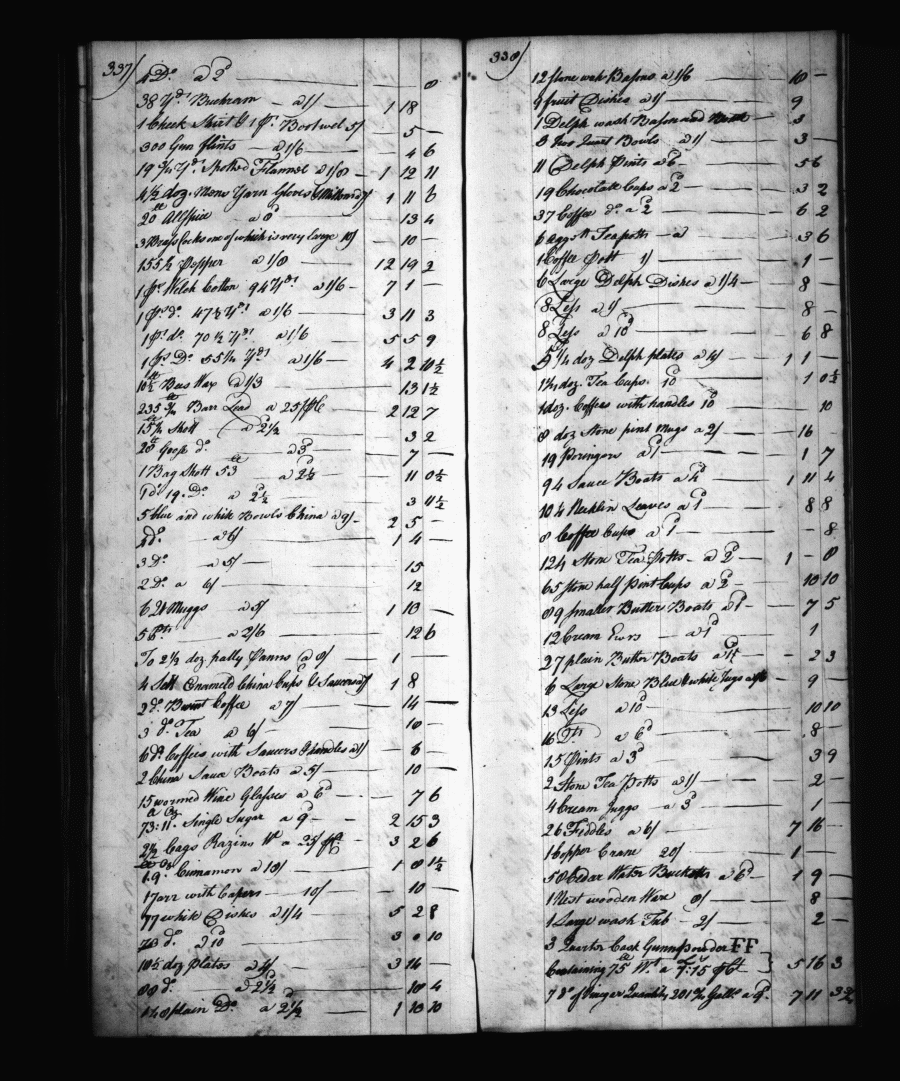 337/
4 Do. a 2d — 8
38 Yds. Buckram — a 1/ — 1 18
1 Check Shirt & 1 ps. 5/ — 5 —
300 Gun flints — a 1/6 — 4 6
19 Yds. Spotted Flannel a 1/8 — 1 12 11
4½ doz. Mens Yarn Gloves 7/ 1 11 6
20 lb Allspice a 8d — 13 4
3 Brass Cocks one of which is very large 10/ — 10 —
155½ Pepper a 1/8 — 12 19 2
1 ps. Welch Cotton 94 Yds. a 1/6 — 7 1 —
1 ps. do. 47½ Yds. a 1/6 — 3 11 3
1 ps. do. 70½ Yds. a 1/6 5 5 9
1 ps. Do. 55¼ Yds. a 1/6 — 4 2 10½
10½ lb Bees Wax a 1/3 — 13 1½
235 lb Barr Lead a 25/ 2 12 7
15¼ lb Shott a 2½ — 3 2
28 lb Goose do. — a 3d — 7 —
1 Bag Shott 53 lb a 2½ — 11 0½
1 do. 19. Do. a 2½ — 3 11½
5 blue and white Bowls China a 9/ — 2 5 —
4 do. — a 6/ — 1 4 —
3 Do — a 5/ — 15
2 Do. a 6/ — 12
6 Qt Muggs a 5/ — 1 10 —
5 Pts. — a 2/6 — 12 6
To 2½ doz. patty Panns a 8/ — 1 —
4 Sett Enameld China Cups & Saucers a 7/ 1 8
2 do. Burnt Coffee a 7/ — 14 —
3 do. Tea a 6/ — 18 —
6 do. Coffees with Saucers & handles a 1/ — 6 —
2 China Sauce Boats a 5/ — 10 —
15 wormed Wine Glasses a 6d — 7 6
73: 11. Single Sugar a 9d — 2 15 3
2½ Cags Razins Wt. a 25/ 3 2 6
1.9. Cinnamon a 18/ — 1 8 1½
1 Jarr with Capers — 10/ — 10 —
77 white Dishes a 1/4 — 5 2 8
73 do. a 10d — 3 0 10
10½ doz Plates a 4/ — 3 16 —
88 do. — a 2½ — 18 4
plain Do. a 2½ — 1 10 10
338/
12 stone wash Basons a 1/6 — 18 —
9 fruit Dishes a 1/ — 9
1 Delph wash Bason and — 3
3 two Quart Bowls a 1/ — 3 —
11 Delph Pints a 6d — 5 6
19 Chocolate Cups a 2d — 3 2
37 Coffee do. a 2d — 6 2
6 aggatt Teapotts — a — 3 6
1 Coffee Pott 1/ — 1 —
6 Large Delph Dishes a 1/4 — 8 —
8 Less a 1/ — 8 —
8 Less a 10d — 6 8
5¼ doz Delph plates a 4/ — 1 1 —
1¼ doz. Tea Cups. 10d — 1 0½
1 doz. Coffees with handles 10d — 10
8 doz Stone pint Mugs a 2/ — 16 —
19 Poringers a 1d — 1 7
94 Sauce Boats a 4d — 1 11 4
104 Leaves a 1d — 8 8
8 Coffee Cups a 1d — 8
124 Stone Tea Potts — a 2d — 1 — 8
65 stone half Pint Cups a 2d — 10 10
89 smaller Butter Boats a 1d — 7 5
12 Cream Ewrs — a 1d — 1
27 plain Butter Boats a 1d — 2 3
6 Large Stone Blue & white Jugs a 1/6 — 9 —
13 Less a 10d — 10 10
16 Pts. a 6d — 8 —
15 Pints a 3d — 3 9
2 Stone Tea Potts a 1/ — 2 —
4 Cream Juggs — a 3d — 1 —
26 Fiddles a 6/ — 7 16 —
1 Copper Crane 20/ — 1 —
58 Cedar Water Bucketts a 6d — 1 9 —
1 Nest wooden Ware 8/ — 8 —
1 Large wash Tub — 2/ — 2 —
3 Quarter Cask Gunn Powder FF
Containing 75 lb Wt. a 5 16 3
7 Do. of Vinegar Quantity 201¾ Galls. a 9d. 7 11 3¾